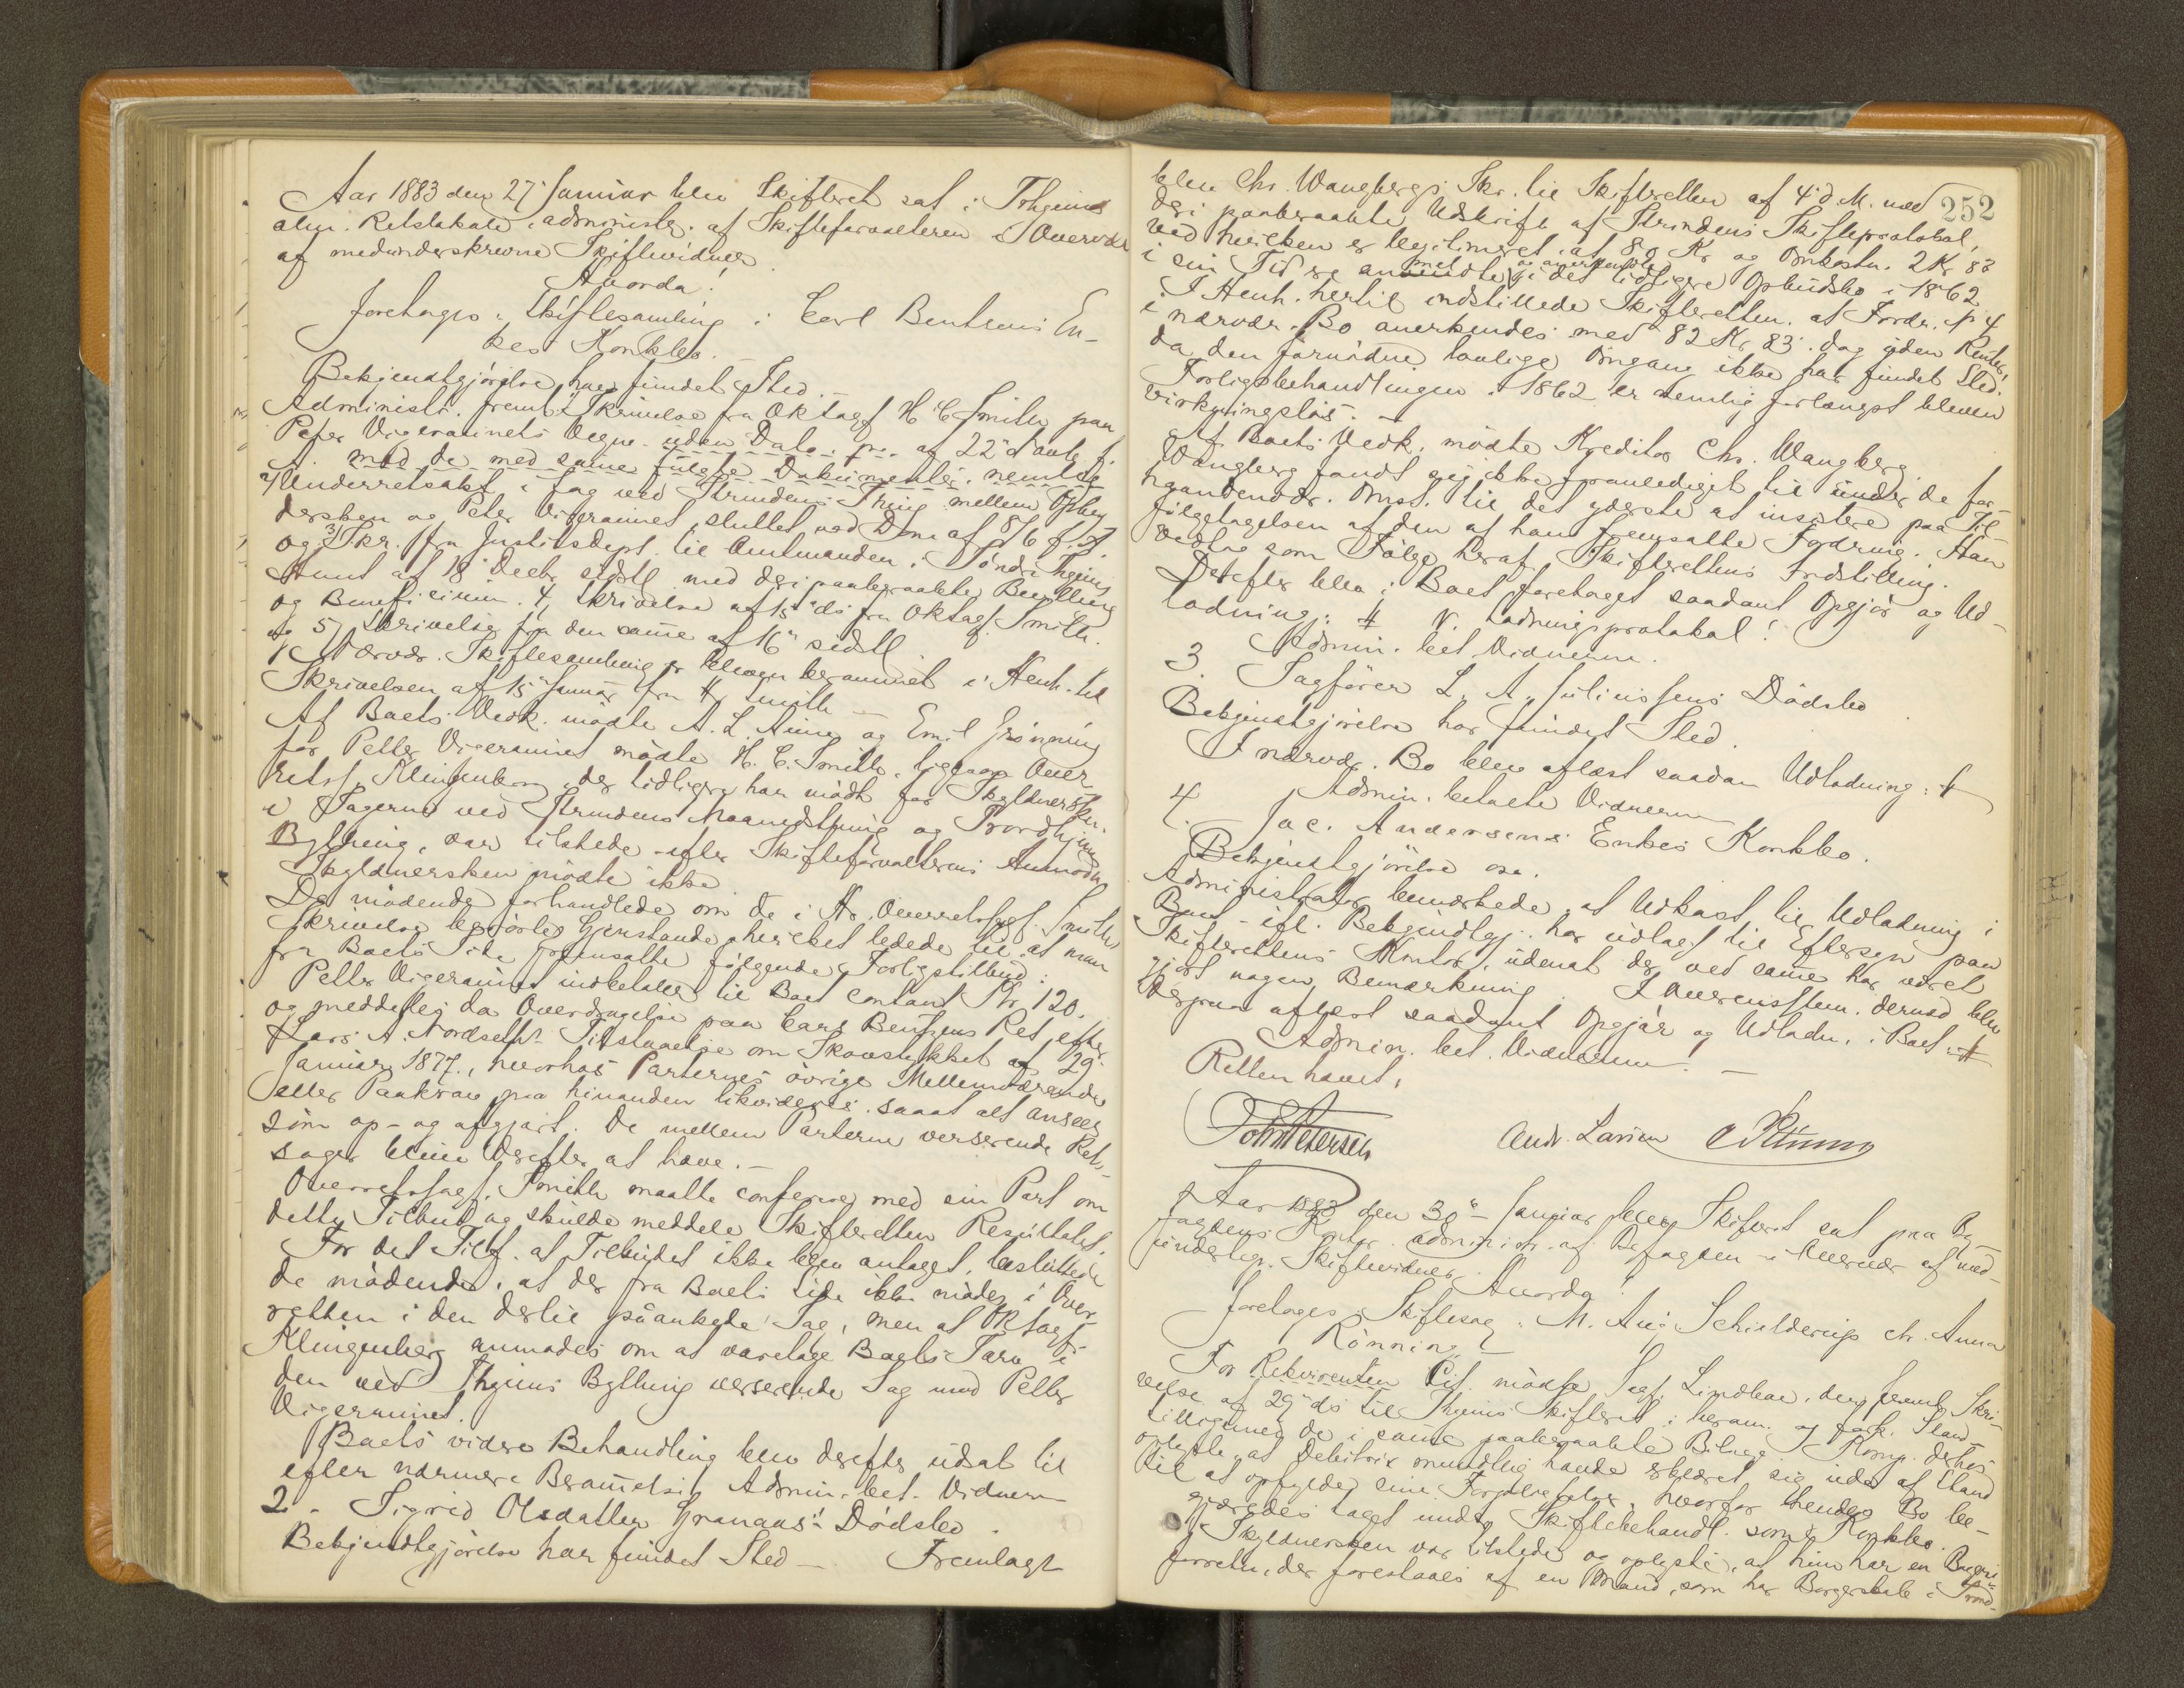 Aar 1883 den 27 Januar blev Skifteret sat i Thjems
alm. Retslokale administr. af Skifteforvalteren i Overvær
af medunderskrevne Skiftevidner
Hvorda:
foretages Skiftesamling i Carl Bentsens En-
kes Konkbo.
Bekjendtgjörelse har fundet Sted.
Administr. freml. Skrivelse fra ORSagf H. C. Smith paa
Peter Vigeraunets Vegne uden Dato, pr. af 22d
med de med samme fulgte Dokumenter, nemlig
2) Underretsakt i Sag ved Strindens Thing mellem
dersken og Peter Vigeraunet sluttet ved Dom af 8/6 f. A.
og 3) Skr. fra Justitsdept. til Amtmanden i Söndre Thjems
Amt af 18 Decbr sidstl med deri paaberaabte Bevilling
og Beneficium. 4, Skrivelse af 15 ds fra ORSagf. Smith.
og 5) Skrivelse fra den samme af 16 sidstl
Nærvær. Skiftesamling er bleven berammet i Henh. til
Skrivelsen af 15 Januar fra Hr Smith
Af Boets Vedk. mödte A. L. Aune og Emil Grönning
for Petter Vigeraunet mödte H. C. Smith, ligesom Over
retssf. Klingenberg, der tidligere har mödt for Skyldnersken
i Sagerne ved Strindens Maanedsthing og Trondhjems
Bything, var tilstede efter Skifteforvalterens Anmodn
Skyldnersken mödte ikke
De mödende forhandlede om de i Hr. Overretssagf. Smiths
Skrivelse berörte Gjenstande, hvilket ledede til, at man
fra Boets Side fremsatte fölgende Forligstilbud:
Petter Vigeraunet indbetaler til Boet contant Kr. 120.
og meddeles da Overdragelse paa Carl Bentzens Ret efter
Lars A. Nordseths Tilstaaelse om Skovstykket af 29
Januar 1877, hvorhos Parternes övrige Mellemværende
eller Paakrav paa hinanden likvideres, saaat alt ansees
som op- og afgjort. De mellem Parterne verserende Rets-
sager blive derefter at hæve.
Overretssagf. Smith maatte conferere med sin Part om
dette Tilbud og skulde meddele Skifteretten Resultatet.
For det Tilf. at Tilbudet ikke blev antaget, besluttede
de mödende, at der fra Boets Side ikke möder i Over-
retten i den dertil påankede Sag, men at ORSagf
Klingenberg anmodes om at varetage Boets Tarv i
den ved Thjems Bything verserende Sag mod Petter
Vigeraunet.
Boets videre Behandling blev derefter udsat til
efter nærmere Berammelse. Admin. bet. Vidnerne
2. Sigrid Olsdatter Granaas's Dödsbo
Bekjendtgjörelse har fundet Sted Fremlagt
252
blev Chr. Wangbergs Skr. til Skifteretten af 4' d. M. med
deri paaberaabte Udskrift af Strindens Skifteprotokol,
ved hvilken er legitimeret at 80 Kr og Omkostn. 2 Kr 83
i sin Tid er anmeldte og anerkjendte i det tidligere Opbudsbo i 1862
I Henh. hertil indstillede Skifteretten, at Fordr. No 4
i nærvær. Bo anerkendes med 82 Kr 83. dog uden Renter,
da den fornödne lovlige Omgang ikke har fundet Sted.
Forligsbehandlingen i 1862 er nemlig forlængst bleven
virkningslös.
Af Boets Vedk. mödte Kreditor Chr. Wangberg.
Wangberg fandt sig ikke foranlediget til under de for-
haandenvær. Omst. til det yderste at insistere paa Til-
fölgetagelsen af den af ham fremsatte Fordring. Han
vedtog som Fölge heraf Skifterettens Indstilling.
Derefter blev i Boet foretaget saadant Opgjör og Ud-
lodning: # V. Lodningsprotokol!
Admin. bet. Vidnerne.
3. Sagförer L. A. Juliussens Dödsbo
Bekjendtgjörelse har fundet Sted.
I nærvær. Bo blev oflæst saadan Udlodning: #
Admin. betalte Vidnerne
4. Jac. Andersens Enkes Konkbo.
Bekjendtgjörelse osv.
Administrator bemærkede, at Udkast til Udlodning i
Boet ifl. Bekjendtgj. har udlagt til Eftersyn paa
Skifterettens Kontor, udenat der ved samme har været
gjort nogen Bemærkning. I Overensstem. dermed blev
derpaa aflæst saadant Opgjör og Udlodn. i Boet: #
Admin. bet. Vidnerne.
Retten hævet,
Joh Petersen Andr. Larsen
Aar 1883 den 30" Januar blev Skifteret sat paa By-
fogdens Kontor administr. af Byfogden i Overvær af med-
undertegn. Skiftevidner
Hvorda:
foretages Skiftesag: M. Aug Schielderup ctr. Anna
Rönning
For Rekvirenten Cit. mödte Sagf. Lindboe, der freml Skri-
velse af 29" ds til Thjems Skifteret i beram. og fork. Stand
tilligemed de i samme paaberaabte Bilage. Komp. derhos
oplyste, at Debitrix mundtlig havde erklæret sig ude af Stand
til at opfylde sine Forpligtelser, hvorfor hendes Bo be-
gjæredes taget under Skiftebehandl. som Konkbo.
Skyldnersken var tilstede og oplyste, at hun har en Bageri-
forretn., der forestaaes af en Mand, som har Borgerskab i Trond-